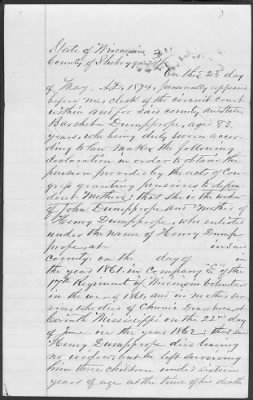 State of Wisconsin
County of Sheboygan
On this 23d day
of May, A.D. 1874, personally appeared
before me clerk of the circuit court
within and for said county and state
Dumpprope, age 82
years, who being duly sworn according
to law makes the following
declaration in order to obtain the
pension provided by the acts of Con-
gress granting pensions to depen-
dent Mothers: that she is the widow
of John Dumpprope and Mother of
Henry Dumpprope, who enlisted
under the name of Henry Dump-
prope, at in said
county, on the day of in
the year 1861 in Company "E" of the
17th Regiment of Wisconsin Volunteers
in the war of 1861 and in mother ser-
vice, who died of Chronic Diarrhoea, at
Corinth Mississippi on the 22nd day
of June in the year 1862, that said
Henry Dumpprope died leaving
no widow, but he left surviving
him three children under sixteen
years of age at the time of his death